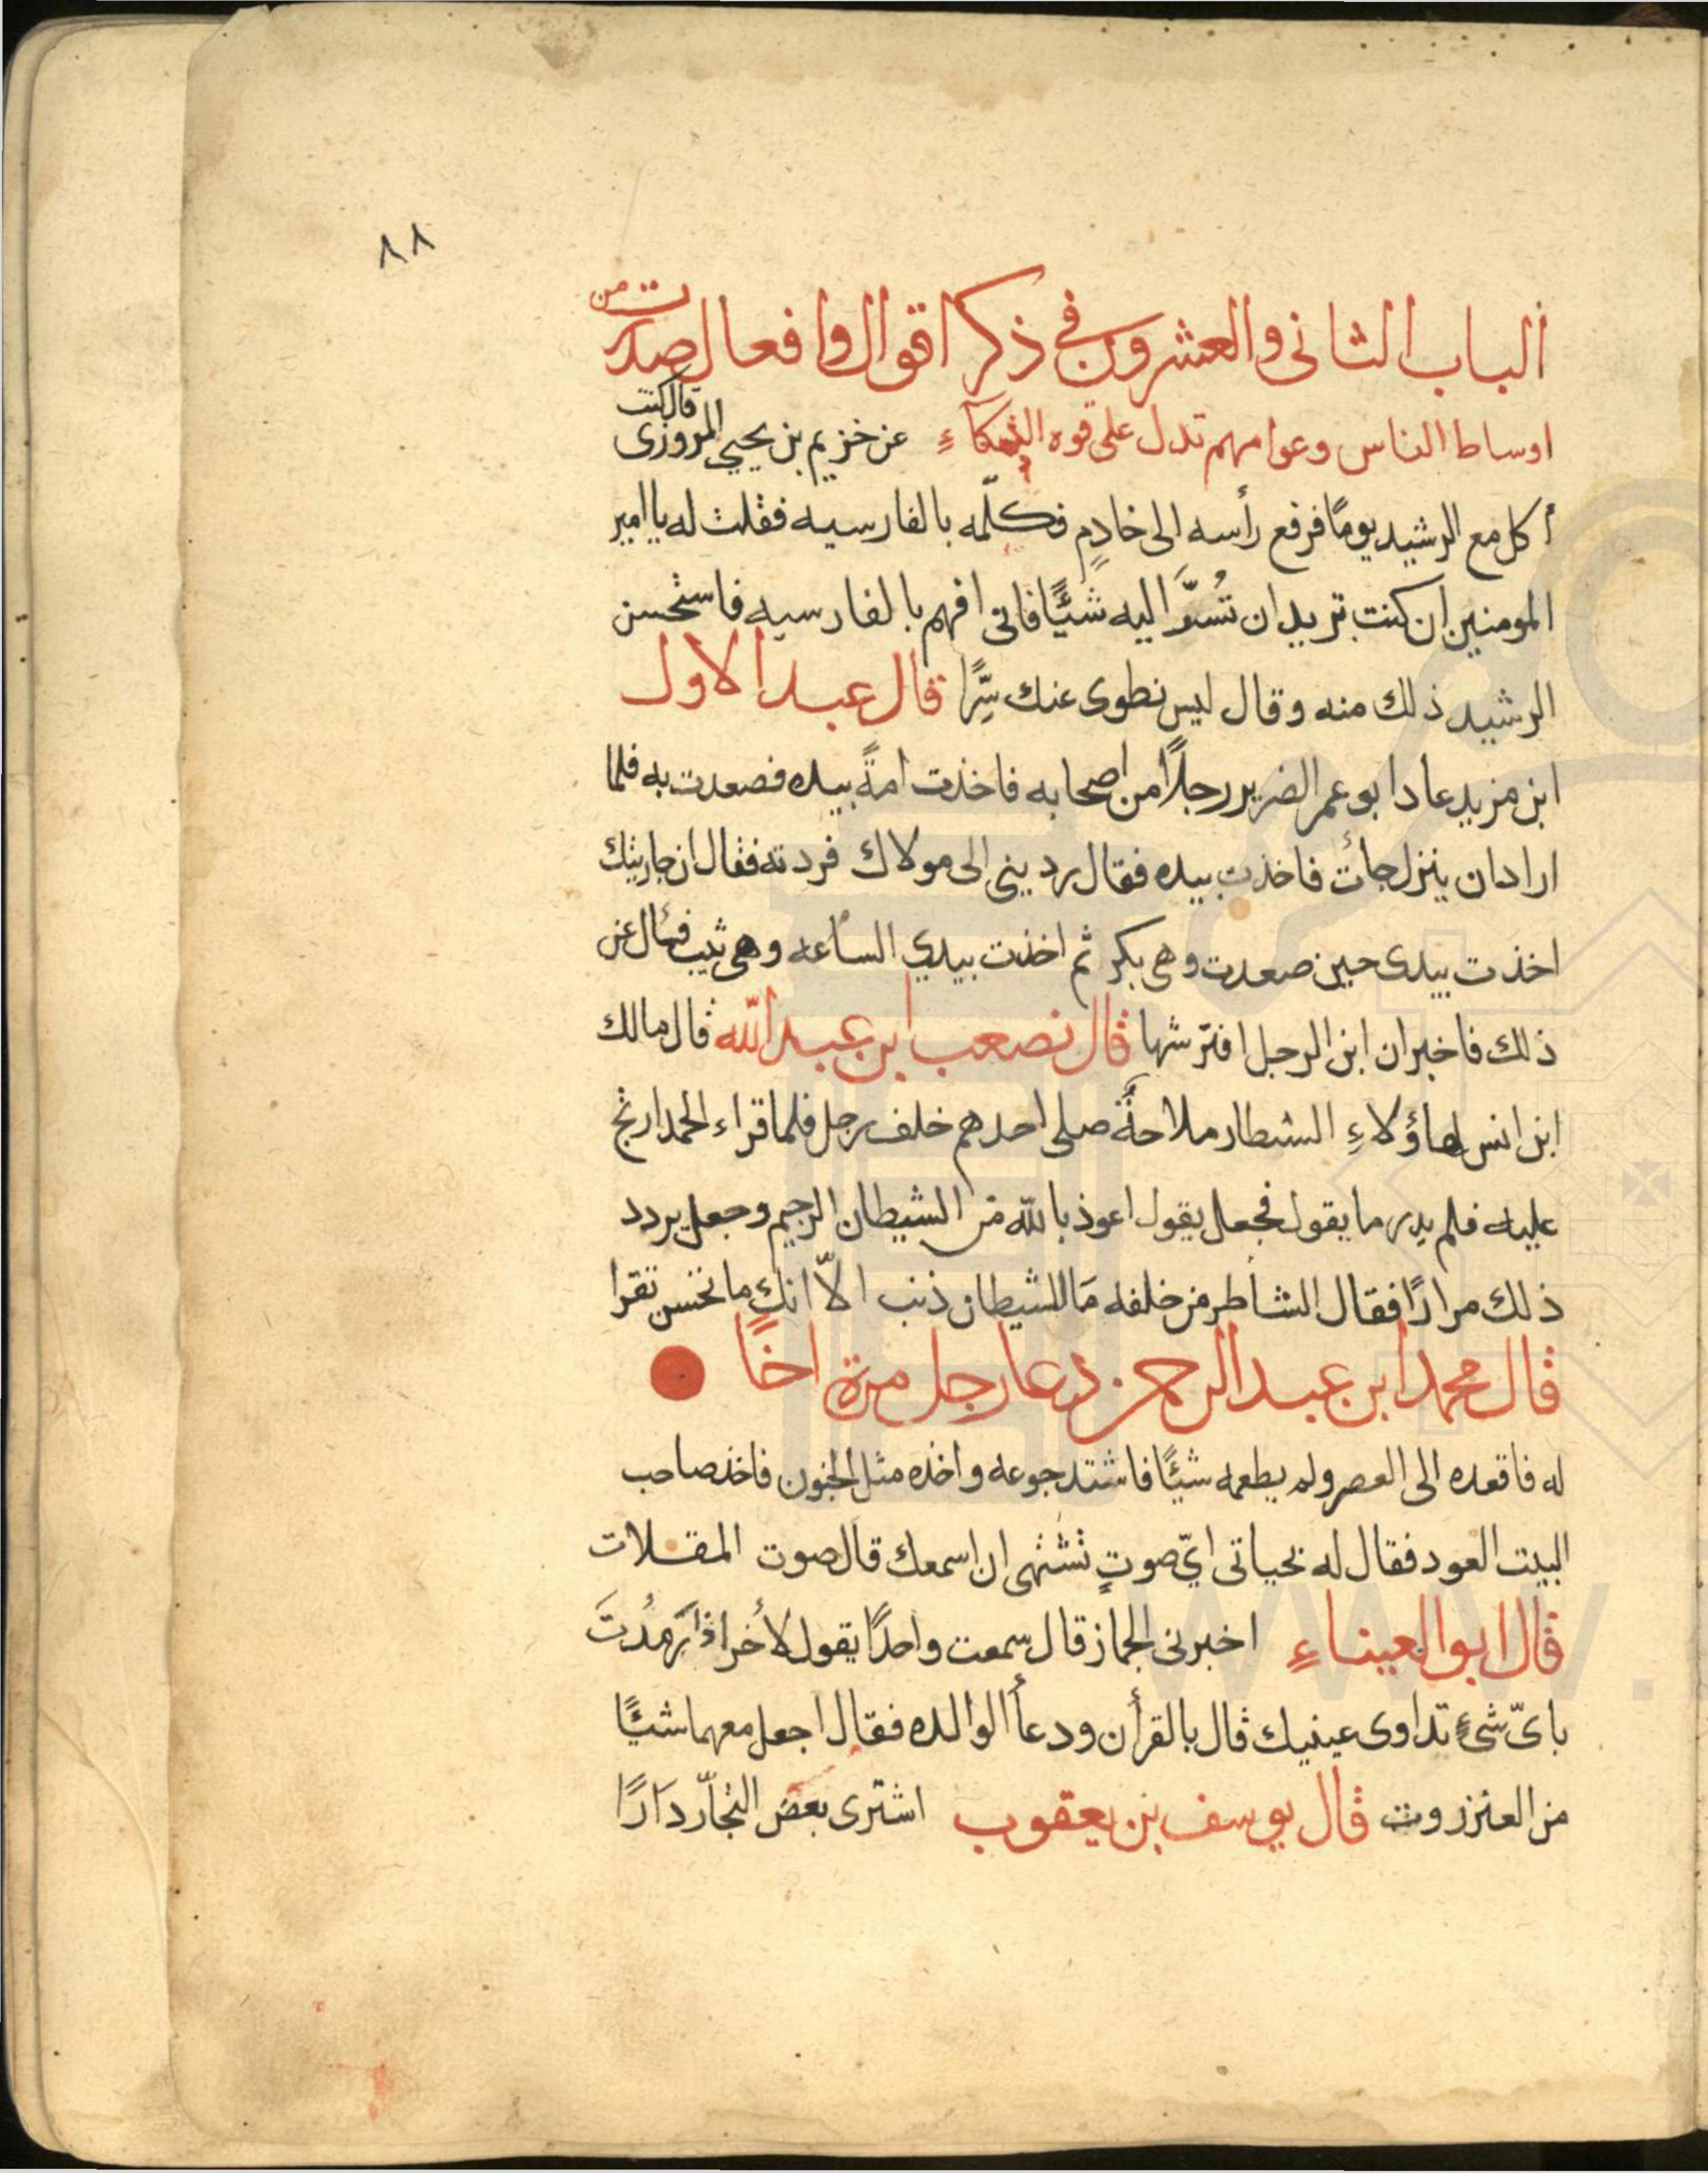 ٨٨
الباب الثانى والعشرون فى ذكر اقوال وافعال صدرت من
اوساط الناس وعوامهم تدل على قوه الذكآءِ عن خزيم بن يحيى المروزى قال كنت
أكل مع الرشيد يومًا فرفع رأسه الى خادمٍ فكلّمه بالفارسيه فقلت له يا امير
المومنين ان كنت تريد ان تُسرَّ اليه شيئًا فانى افهم بالفارسيه فاستحسن
الرشيد ذلك منه وقال ليس نطوى عنك سِرًّا قال عبد الاول
ابن مزيد عاد ابو عمر الضرير رجلاً من اصحابه فاخذت امةً بيده فصعدت به فلما
اراد ان ينزل جأت فاخذت بيده فقال ردينى الى مولاك فردته فقال ان جاريتك
اخذت بيدى حين صعدت وهى بكر ثم اخذت بيدي الساعه وهى ثيب فسأل عن
ذلك فاخبر ان ابن الرجل افترشها قال نصعب ابن عبد الله قال مالك
ابن انس لهاؤلاءِ الشطار ملاحةٌ صلى احدهم خلف رجل فلما قراء الحمد ارتج
عليه فلم يدر ما يقول فجعل يقول اعوذ بالله من الشيطان الرجيم وجعل يردد
ذلك مرارًا فقال الشاطر من خلفه مَا للشيطان ذنب الاّ انك ما تحسن تقرا
قال محمد ابن عبد الرحمن دعا رجل مرة اخًا
له فاقعده الى العصر ولم يطعمه شيئًا فاشتد جوعه واخذه مثل الجنون فاخذ صاحب
البيت العود فقال له بحياتى ايّ صوتٍ تشتهى ان اسمعك قال صوت المقلات
قال ابو العيناءِ اخبرنى الجماز قال سمعت واحدًا يقول لأخر اذا رَمُدتَ
باىّ شىءٍ تداوى عينيك قال بالقرأن ودعأ الوالده فقال اجعل معهما شيئًا
من العنزروت قال يوسف بن يعقوب اشترى بعض التجّار دَارًا